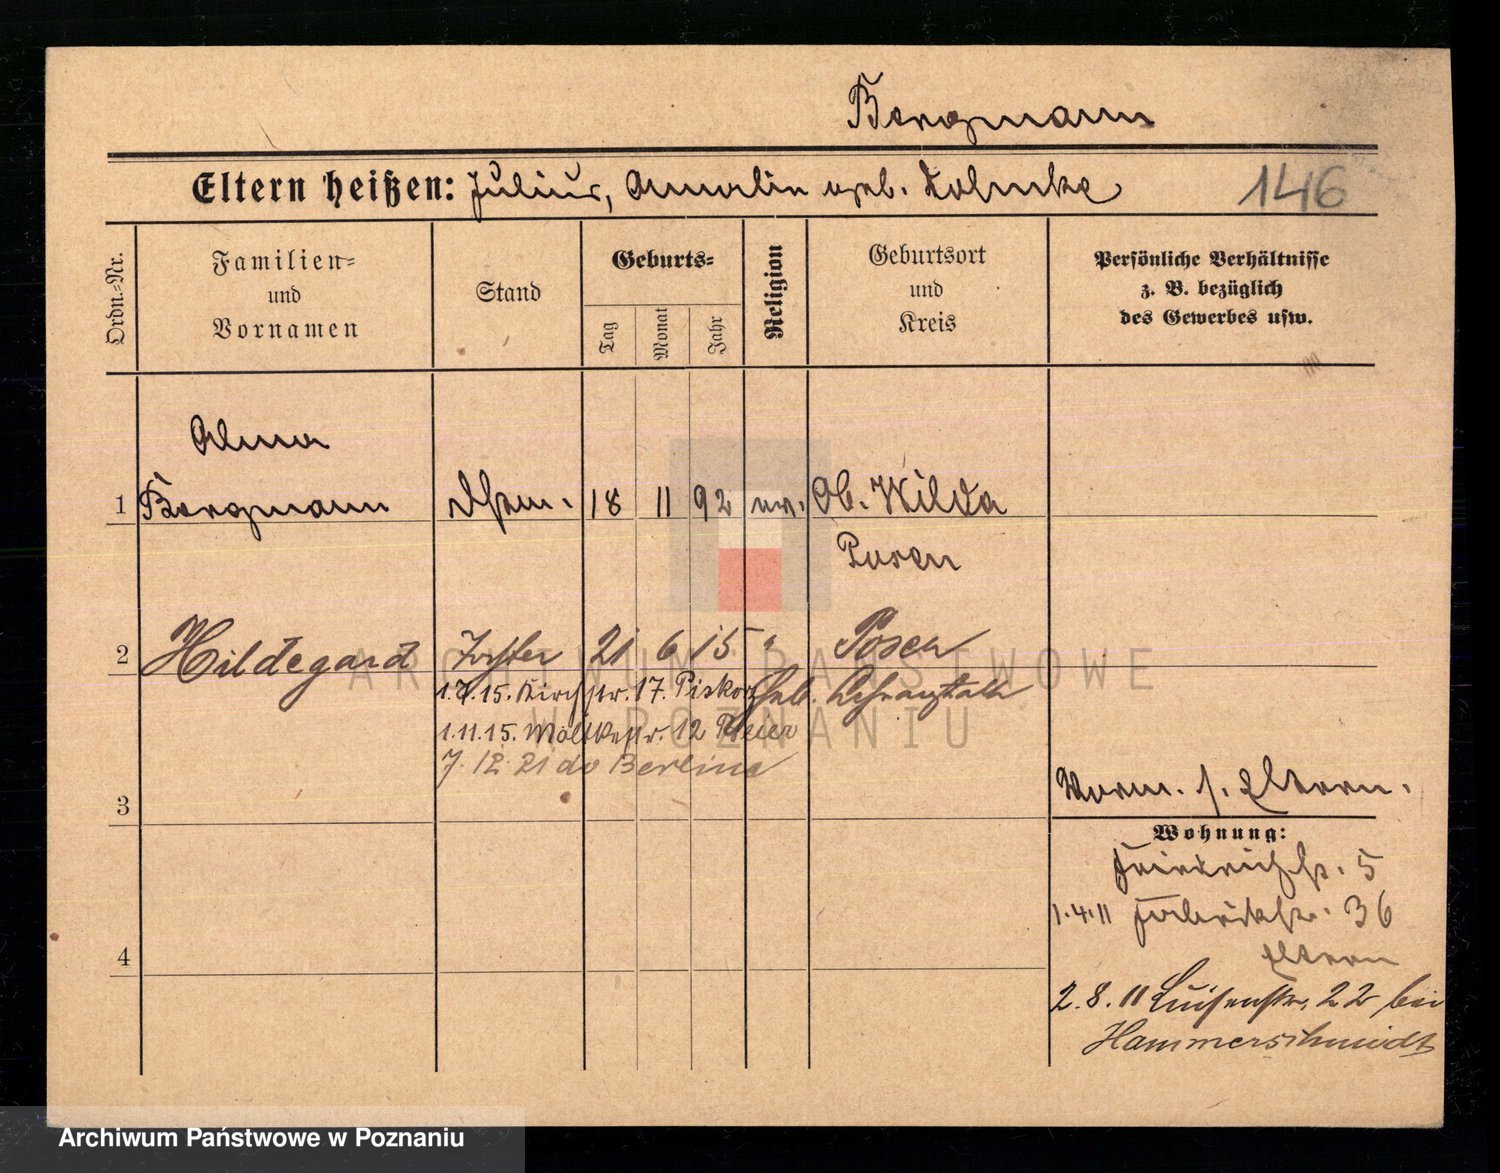 Bergmann
Eltern heißen: Julius, Amalie geb.
146
Ordn.-Nr.
Familien-
und
Vornamen
Stand
Geburts-
Tag
Monat
Jahr
Religion
Geburtsort
und
Kreis
Persönliche Verhältnisse
z. B. bezüglich
des Gewerbes usw.
Alma
1 Bergmann 18 11 92 ev. Ob. Wilda
Posen
2 Hildegard Tochter 21 6 15 " Posen
1.7.15. Kirchstr. 17. Geb.
1.11.15. Moltkestr. 12
7.12.21 do
3
Vorm. s. Eltern.
Wohnung:
Friedrichstr. 5
1.4.11 Fabrikstr. 36
Eltern
4
2.8.11 Luisenstr. 22 bei
Hammerschmidt
ARCHIWUM PAŃSTWOWE
W POZNANIU
Archiwum Państwowe w Poznaniu